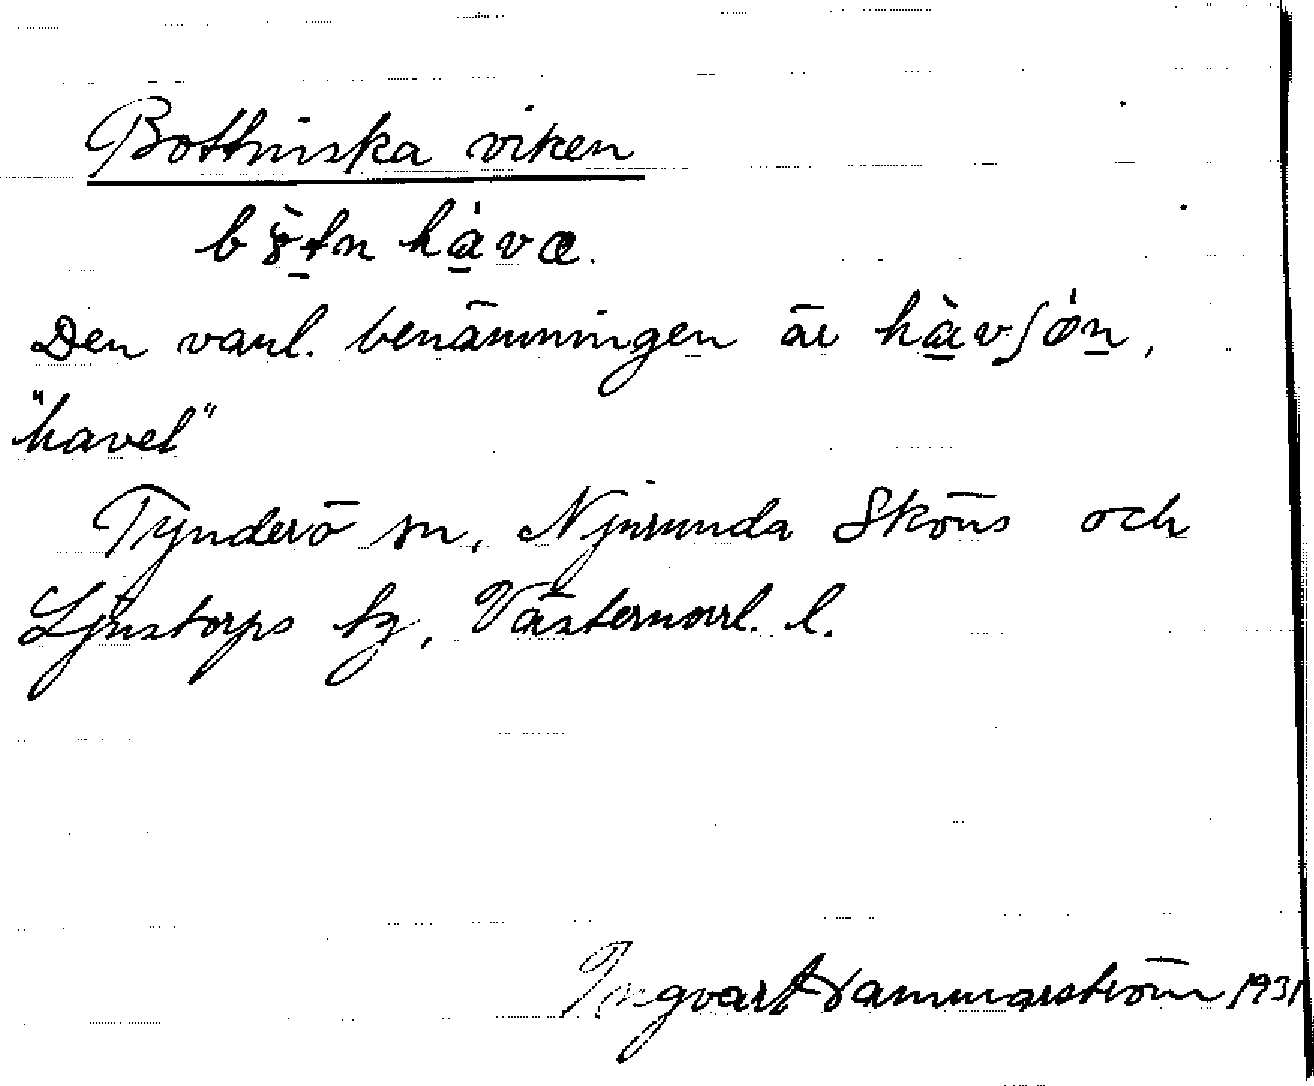 Bottniska viken
bòtn hávæ.
Den vanl. benämningen är hàvʃón,
"havet"
Tynderö sn, Njurunda Sköns och
Ljustorps tg, Västernorrl. l.
Ingvart Hammarström 1931